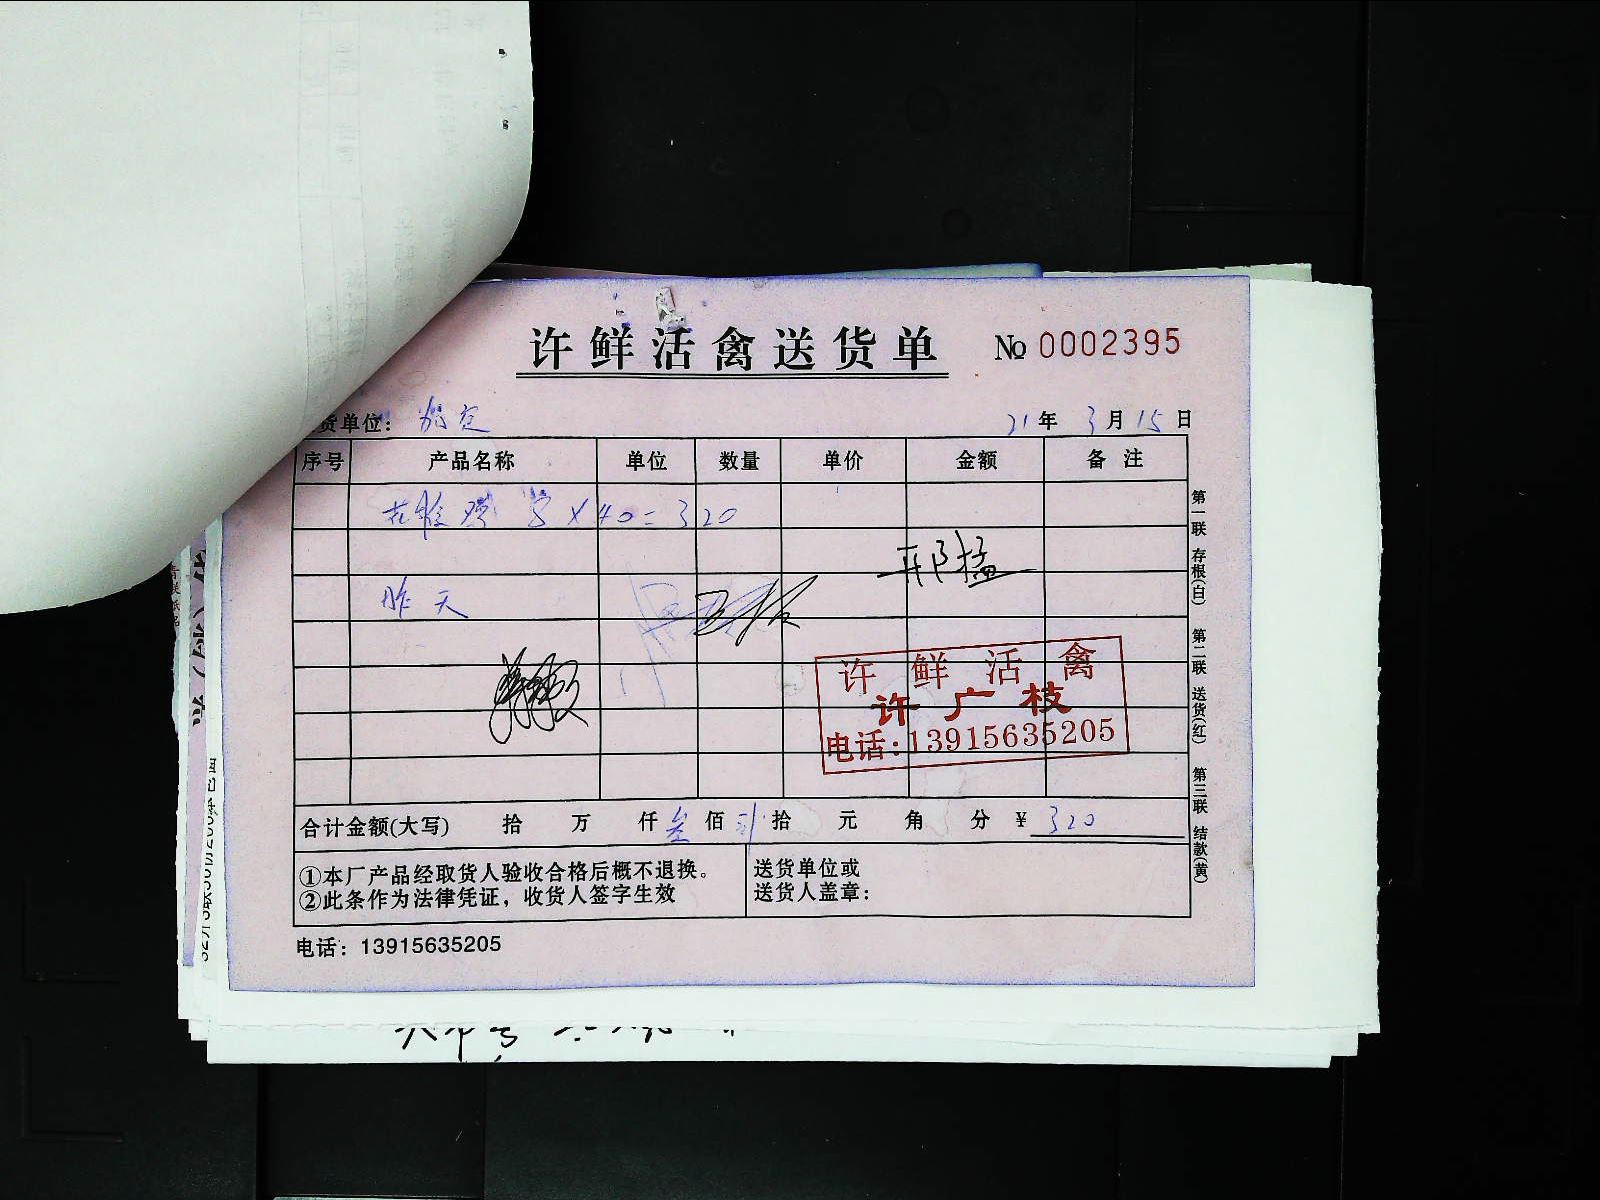 许鲜活禽送货单 No 0002395
货单位：
21年3月15日
序号 产品名称 单位 数量 单价 金额 备注
8×40=320
邢猛
昨天
许鲜活禽
许广枝
电话:13915635205
合计金额(大写) 拾 万 仟叁佰贰拾 元 角 分 ¥ 320
①本厂产品经取货人验收合格后概不退换。
②此条作为法律凭证，收货人签字生效
送货单位或
送货人盖章：
电话：13915635205
第一联 存根(白) 第二联 送货(红) 第三联 结款(黄)